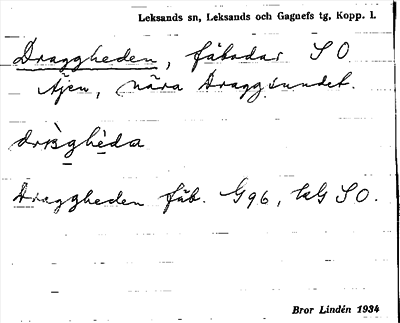 Leksands sn, Leksands och Gagnefs tg, Kopp. l.
Draggheden, fäbodar S O
Åjen, nära Draggsundet.
Draggheden fäb. G96, kG S O.
Bror Lindén 1934